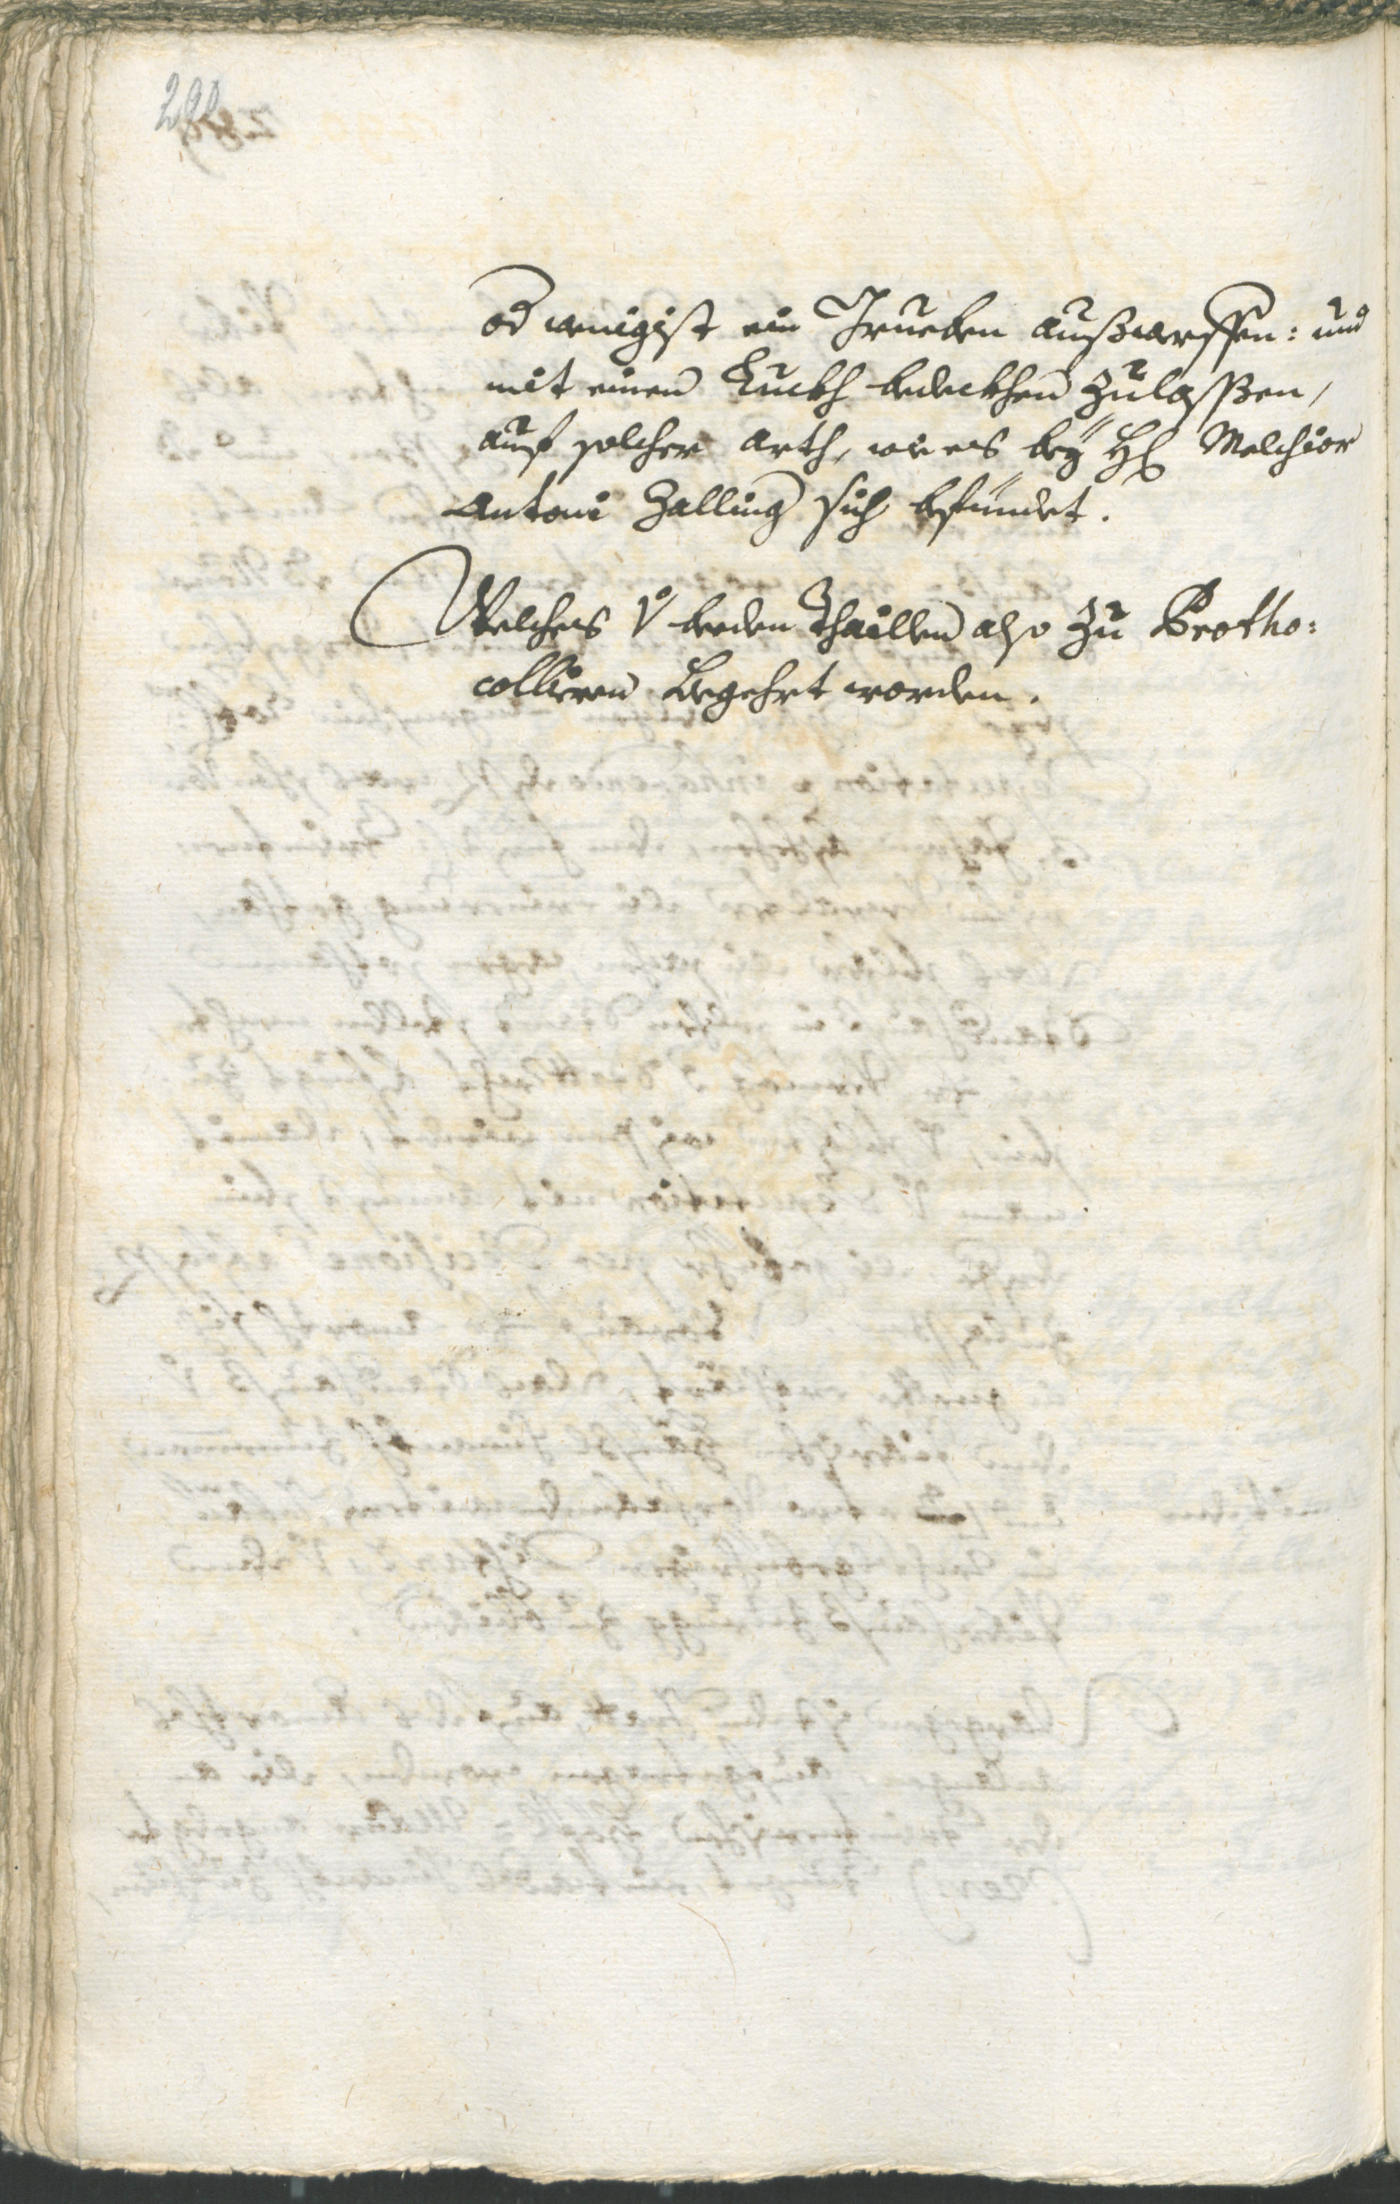 od wenigist ein Trueben außwerffen: und
mit einen Luckh bedeckhen zulassen,
auf solcher arth, wie es bey H: Melchior
Antoni Zalling sich befündet.
Welches v: beeden Thaillen also zu Protho:
collieren begehrt worden.